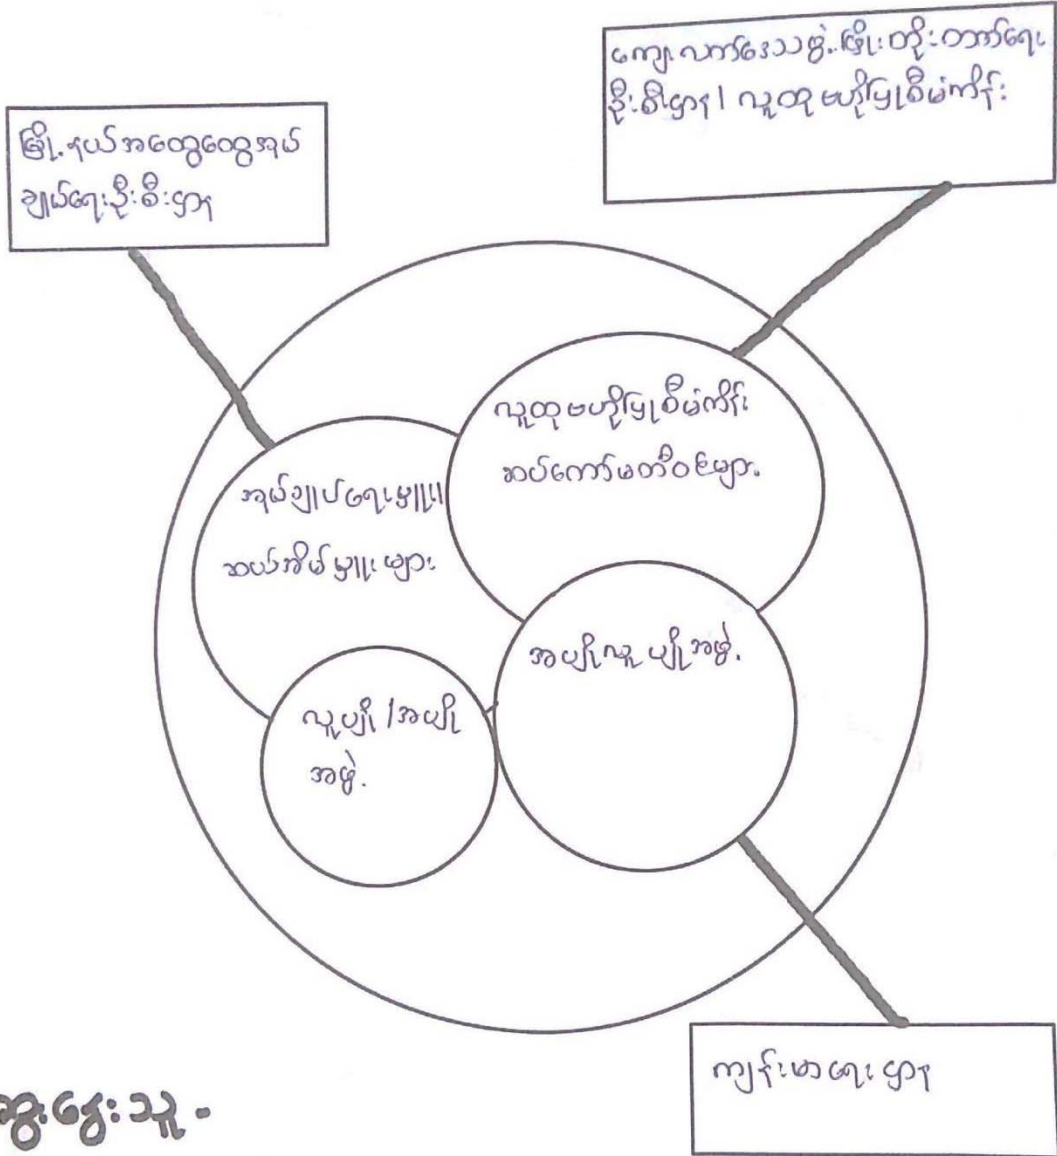 မြို့နယ်အထွေထွေအုပ်
ချုပ်ရေးဦးစီးဌာန
ကျေးလက်ဒေသဖွံ့ဖြိုးတိုးတက်ရေး
ဦးစီးဌာန/ လူထုဗဟိုပြုစီမံကိန်း
လူထုဗဟိုပြုစီမံကိန်း
ဆပ်ကော်မတီဝင်များ
အုပ်ချုပ်ရေးမှူး၊
ဆယ်အိမ်မှူးများ
အပျိုလူပျိုအဖွဲ့
လူပျို/အပျို
အဖွဲ့
ကျန်းမာရေးဌာန
ဆွေးနွေးသူ -